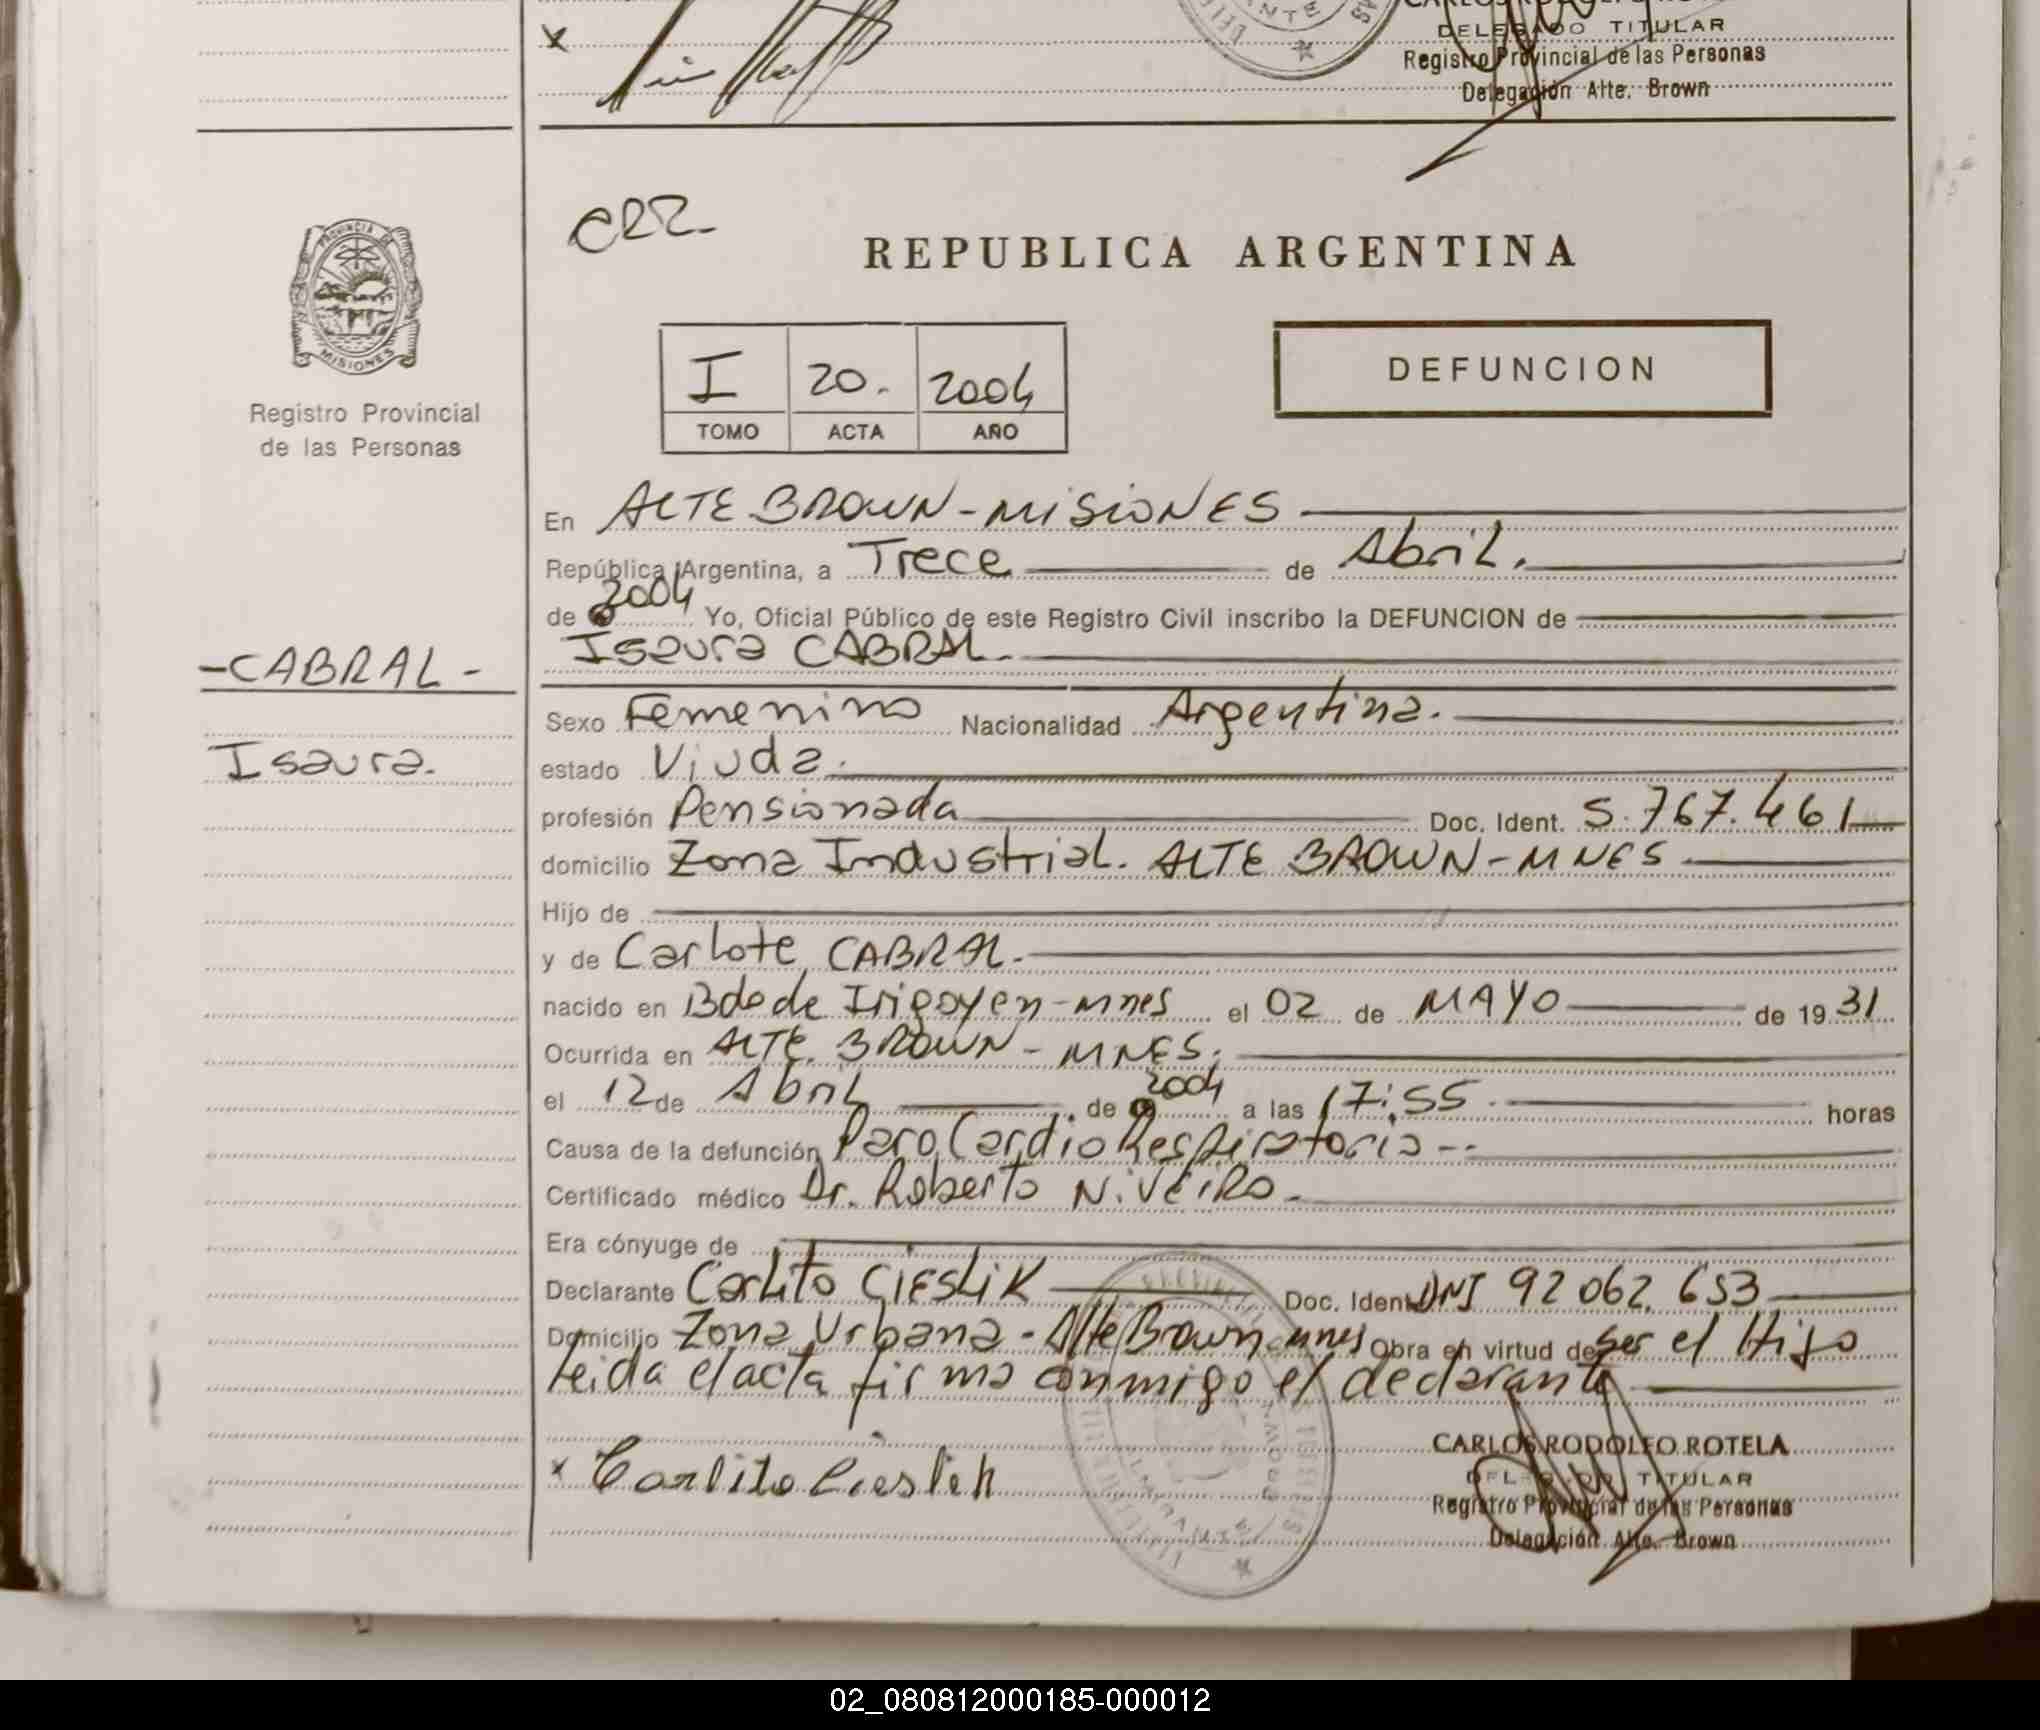 X
DELEGADO TITULAR
Registro Provincial de las Personas
Delegación Alte. Brown
PROVINCIA DE
MISIONES
Registro Provincial
de las Personas
REPUBLICA ARGENTINA
I 20. 2004
TOMO ACTA AÑO
DEFUNCION
En ALTE BROWN-MISIONES
República Argentina, a Trece de Abril.
de 2004 Yo, Oficial Público de este Registro Civil inscribo la DEFUNCION de
Isaura CABRAL.
-CABRAL-
Isaura.
Sexo Femenino Nacionalidad Argentina.
estado Viuda.
profesión Pensionada Doc. Ident. 5.767.461
domicilio Zona Industrial. ALTE BROWN-MNES
Hijo de
y de Carlote CABRAL.
nacido en Bdo de Irigoyen-mnes el 02 de MAYO de 1931
Ocurrida en ALTE. BROWN-MNES.
el 12 de Abril de 2004 a las 17:55 horas
Causa de la defunción Paro Cardio Respiratorio--
Certificado médico Dr. Roberto NiVEiRo.
Era cónyuge de
Declarante Carlito CiESLiK Doc. Ident. DNI 92 062. 653
Domicilio Zona Urbana-Alte Brown mnes Obra en virtud de ser el Hijo
leida el acta firma conmigo el declarante
x Carlito Cieslik
CARLOS RODOLFO ROTELA
DELEGADO TITULAR
Registro Provincial de las Personas
Delegación Alte. Brown
02_080812000185-000012